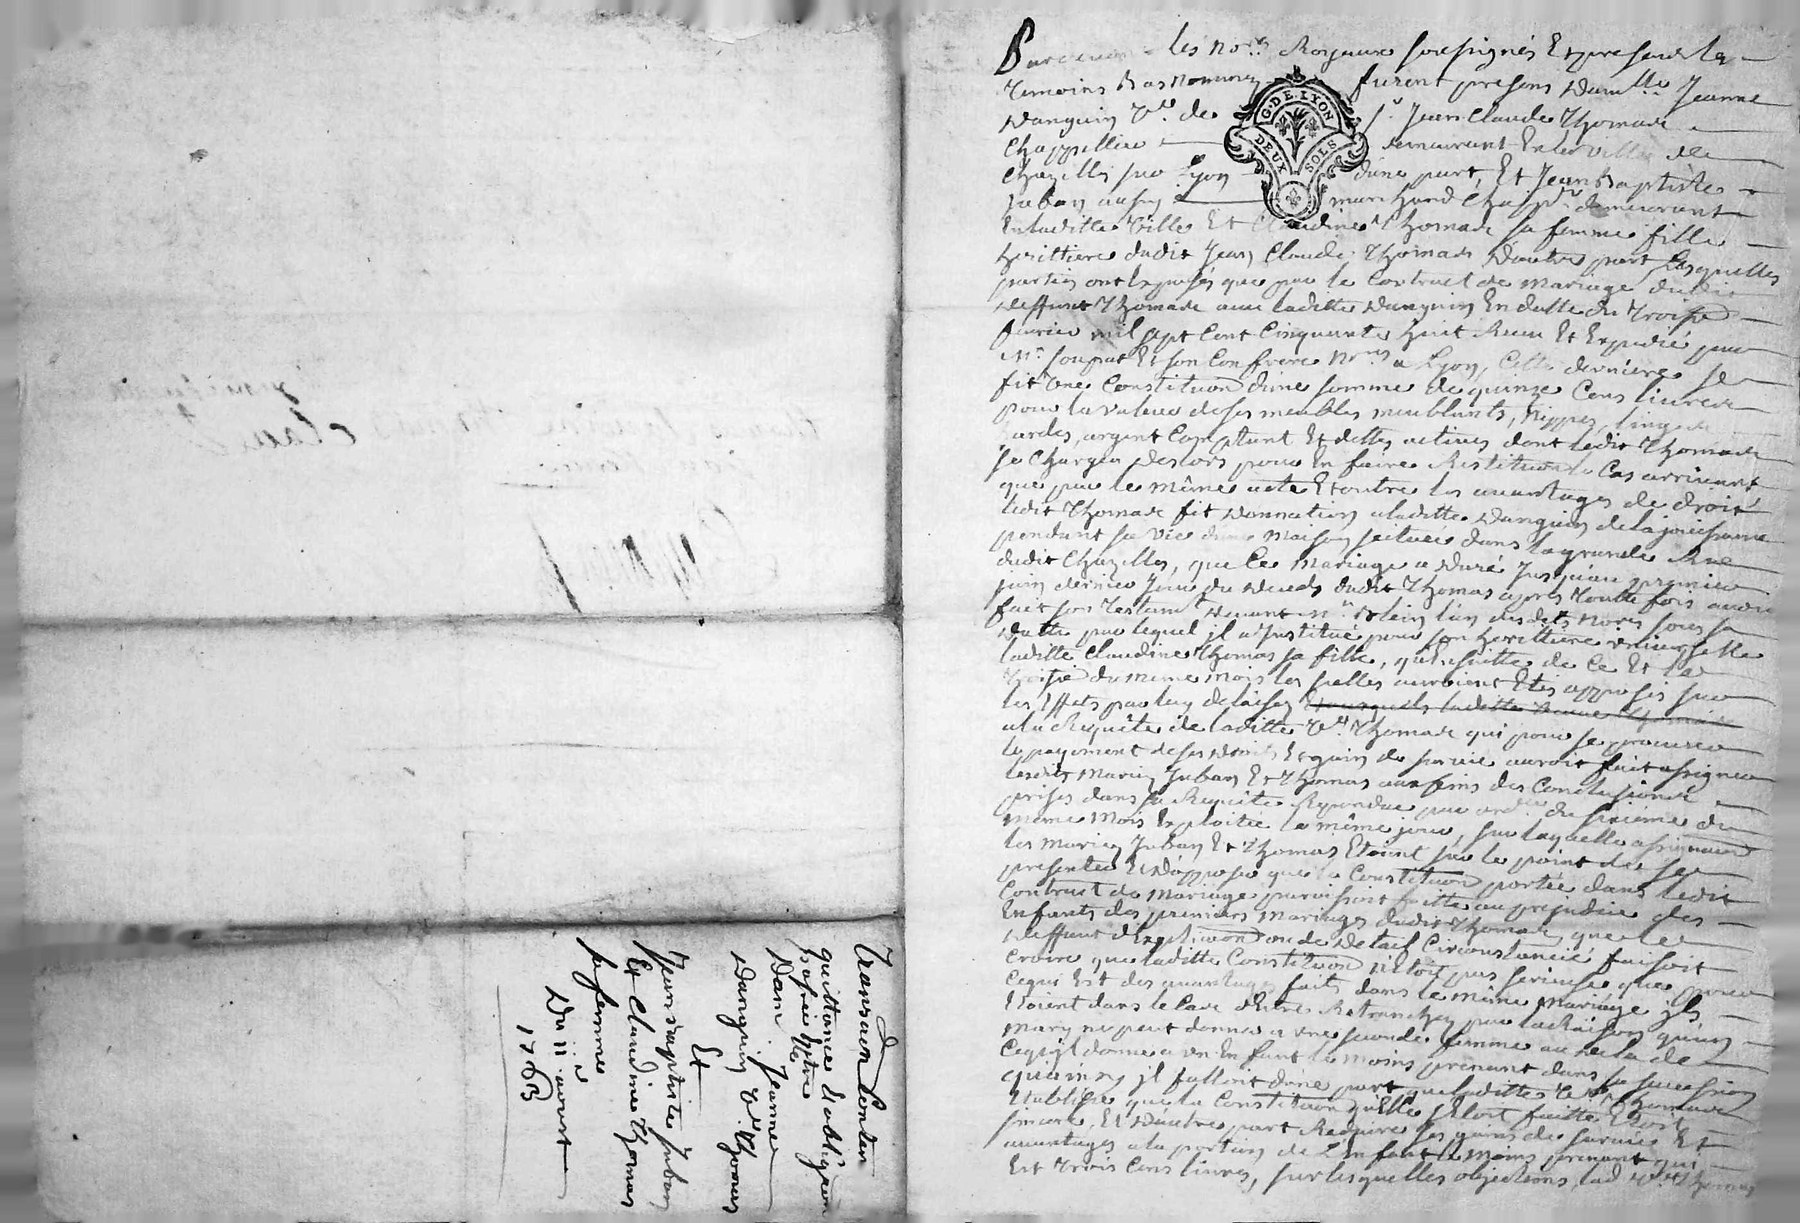 Pardevant les No.res Royaux soussignés Et presend la
temoins Bas nommez furent presens Dam.lle Jeanne
Danguin V.e de S.r Jean Claude Thomas
Chappellier demeurant En la Ville de
Chazelles sur Lyon d'une part, Et Jean Baptiste
Juban aussy marchand Chapp.r demeurant
En laditte Ville Et Claudine Thomas sa femme fille
heritiere dudit Jean Claude Thomas D'autre part Lesquelles
parties ont Exposés que par le Contract de Mariage dudit
deffunt Thomas avec laditte Danguin En datte du Trois
fevrier mil sept Cent Cinquante huit Receu Et Expedié par
M.e Soupat Et son Confrere No.res a Lyon, Cette derniere se
fit Une Constitution d'une somme de quinze Cens livres
pour la valeur de ses meubles meublants, Nippes, linges
ardes, argent Comptant Et dettes actives dont ledit Thomas
se Chargea Deslors pour En faire Restitution le Cas arrivant
que par le même acte Et outre les avantages de droit
ledit Thomas fit Donnation a laditte Danguin de la joüissance
pendant sa Vie d'une Maison scituée dans la grande Rue
dudit Chazelles, que Ce Mariage a Duré Jusqu'au premier
juin dernier Jour du Decés dudit Thomas apres Toutte fois avoir
fait son Testam.t Devant M.e Blein l'un desdits No.res sous sa
Datte par lequel il a Institué pour son heritiere universelle
laditte Claudine Thomas sa fille, qu'Ensuitte de Ce Et le
troisie du meme mois les scellés auroient Etés apposés sur
les Effets par luy delaissez Lesquels laditte Veuve Thomas
a la Requête de laditte V.e Thomas qui pour se procurer
le payement de ses Droits Et gain de survie auroit fait assigner
lesdits Mariez Juban Et Thomas aux fins des Conclusions
prises dans sa Requête Repondue par ord.ce du sixieme du
même Mois Exploitée le même jour, sur laquelle assignation
les Mariez Juban Et Thomas Etoient sur le point de se
presenter Et D'opposer que la Constitution portée dans ledit
Contract de Mariage paroissoit faitte au prejudice des
Enfants des premiers Mariages dudit Thomas, que le
deffaut d'Explication ou de Detail Circonstancié faisoit
Croire que laditte Constitution n'Etoit pas serieuse que pour
Cequi Est des avantages faits dans le même Mariage ils
Etoient dans le Cas d'Etre Retranchez par la Raison qu'un
Mary ne peut donner a Une seconde femme au dela de
Ceqi'il donne a un Enfant le moins prenant dans sa succession
qu'ainsy il falloit d'une part que laditte V.e Thomas
Etablisse que la Constitution qu'Elle s'Etoit faitte Etoit
sincere, Et D'autre part Reduire ses gains de survie Et
avantages a la portion de l'Enfant le Moins prenant qui
Est trois Cens livres, sur lesquelles objections, lad. V.e Thomas
Transaction Conten
quittance Et obligaon
passée Entre
Dam. Jeanne
Danguin V.e Thomas
Et
Jean Baptiste Juban
Et Claudine Thomas
sa femme
Du 11 aoust
1763